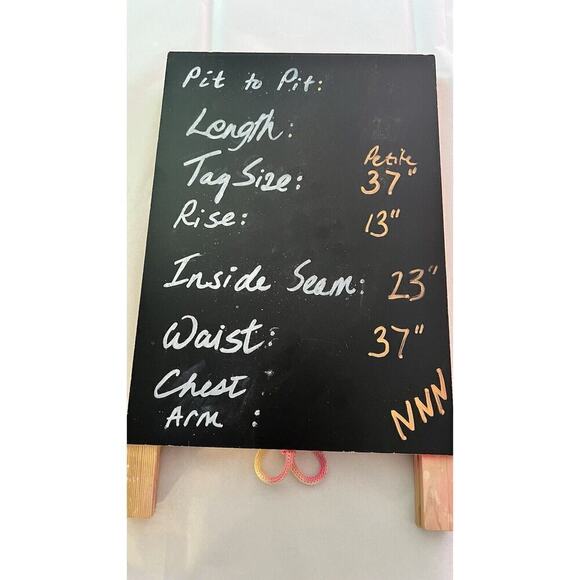 Pit to Pit:
Length:
Petite
Tag Size: 37"
Rise: 13"
Inside Seam: 23"
Waist: 37"
Chest
Arm :
NNN